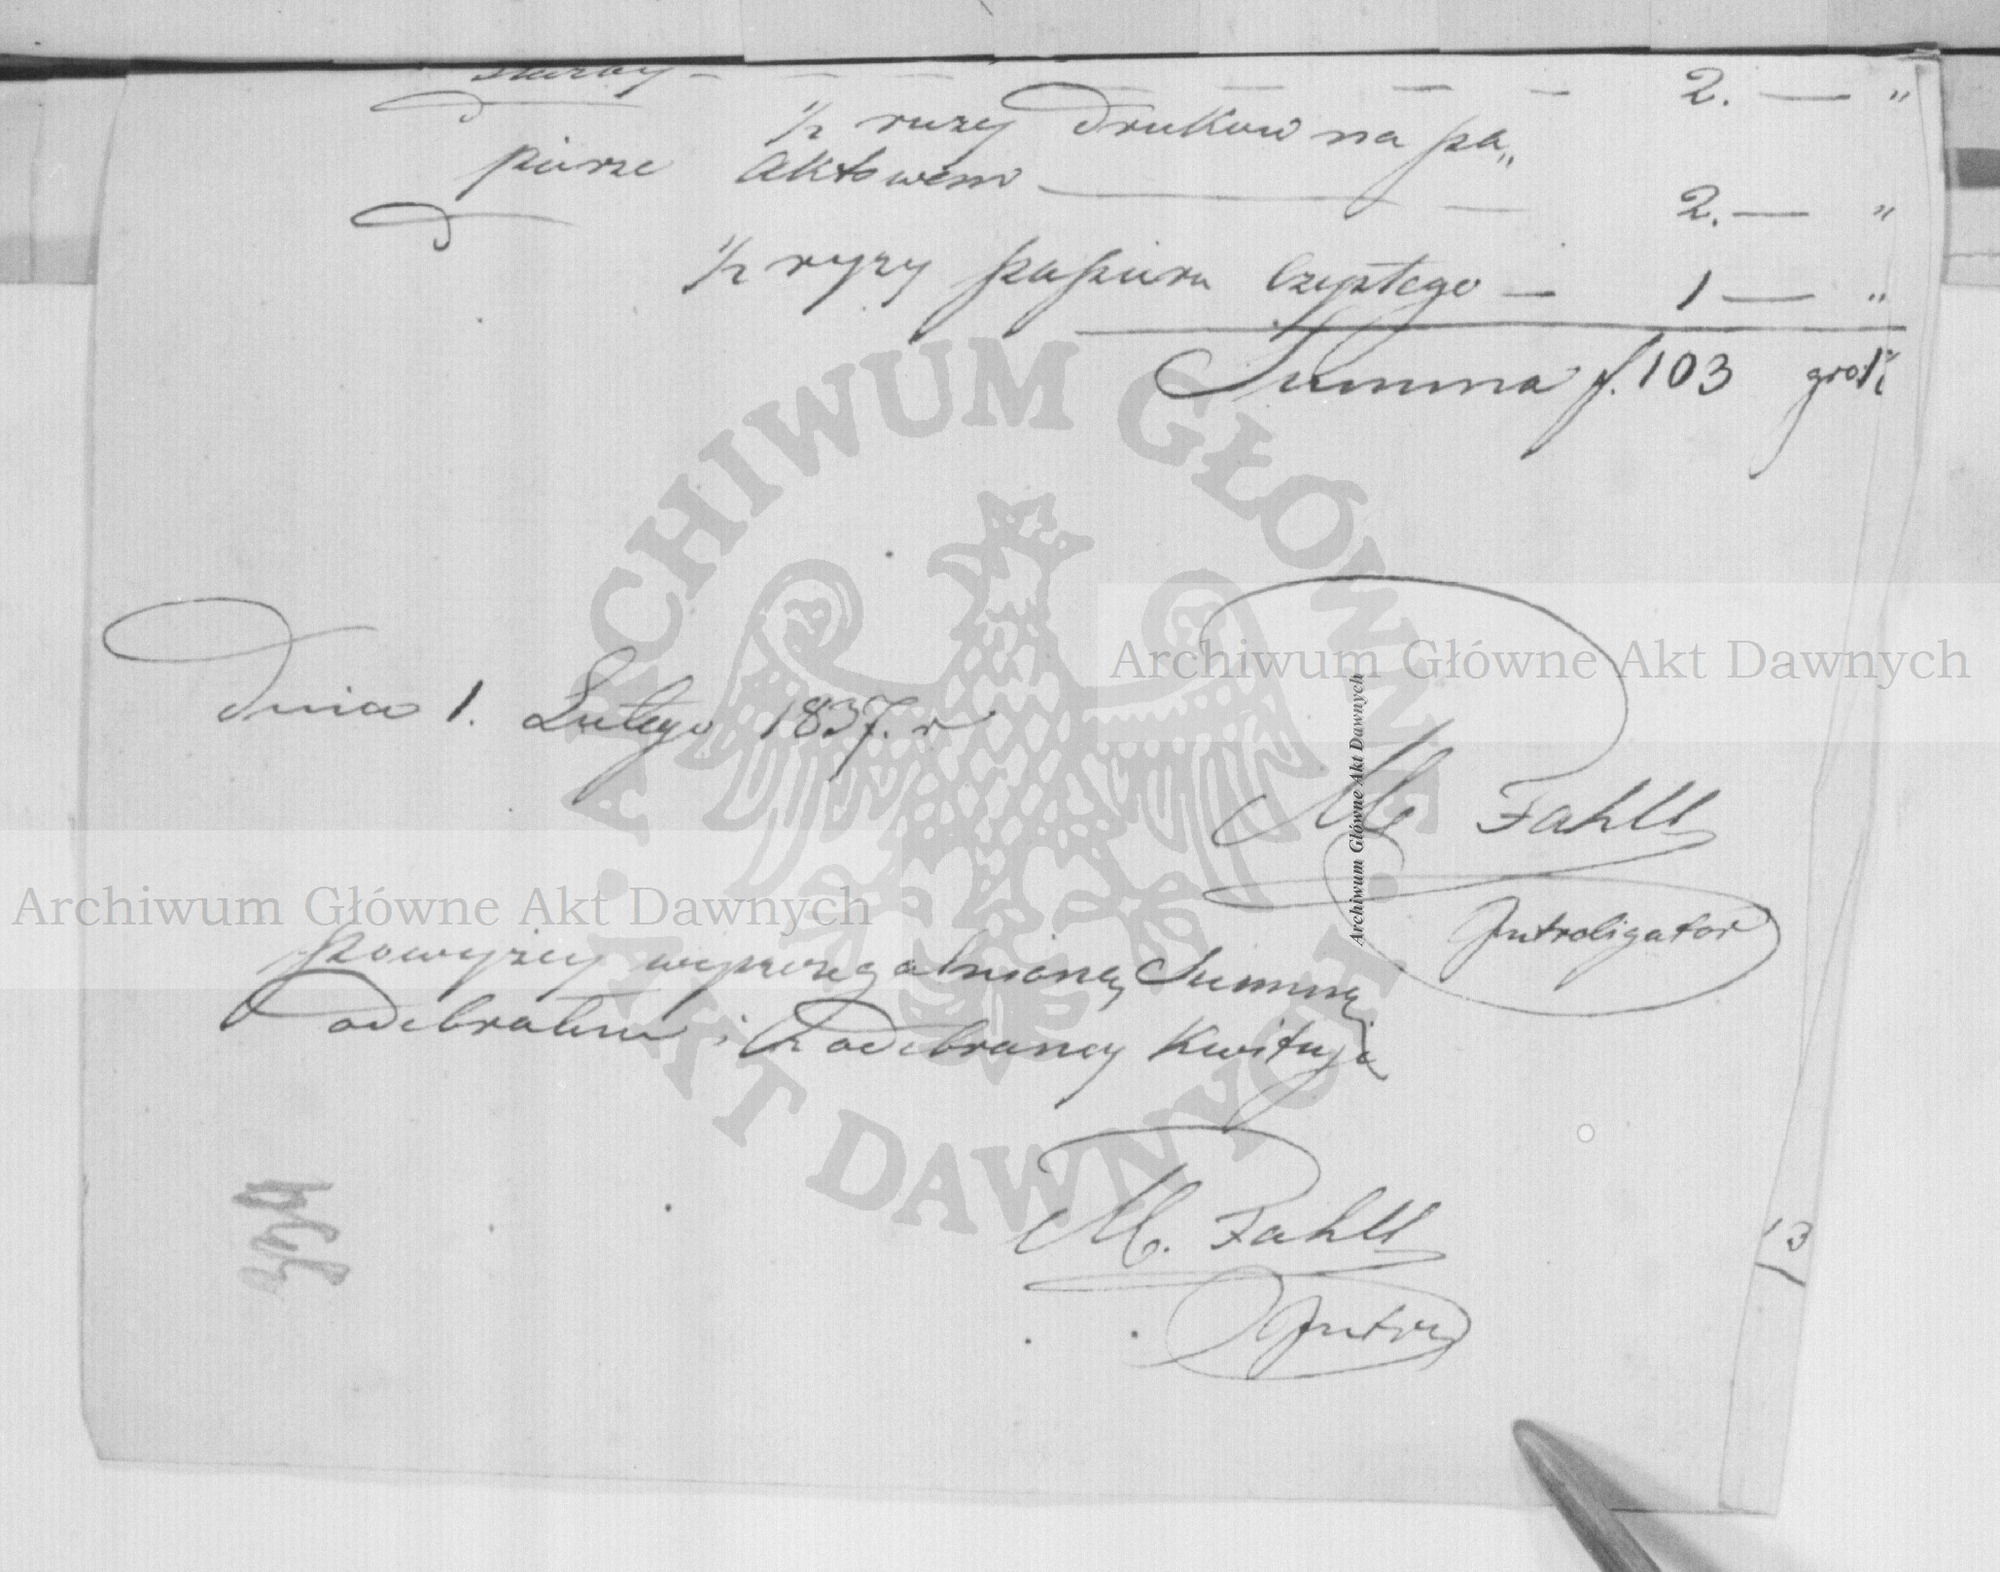 2. — "
1/2 ruzy Druków na pa„
pierze Aktowem — 2. — "
1/2 ryzy papieru Czystego — 1 — "
Summa f. 103 gro
Dnia 1. Lutego 1837. r
M. Fahll
Introligator
Powyżey wyszczegulnioną Summę
odebrałem i z odebraney Kwituję
M. Fahll
Intr
13
ARCHIWUM GŁÓWNE AKT DAWNYCH
Archiwum Główne Akt Dawnych
Archiwum Główne Akt Dawnych
Archiwum Główne Akt Dawnych